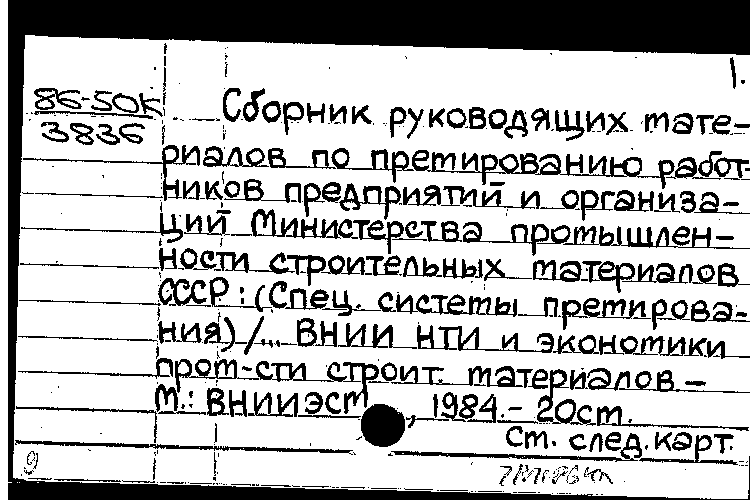 1.
86-50К
3836
Сборник руководящих мате-
риалов по претированию работ-
ников предприятий и организа-
ций Министерства промышлен-
ности строительных материалов
СССР: (Спец. системы претирова-
ния) /... ВНИИ НТИ и экономики
пром-сти строит. материалов. —
М.: ВНИИЭСМ, 1984. - 20ст.
Ст. след. карт.
9